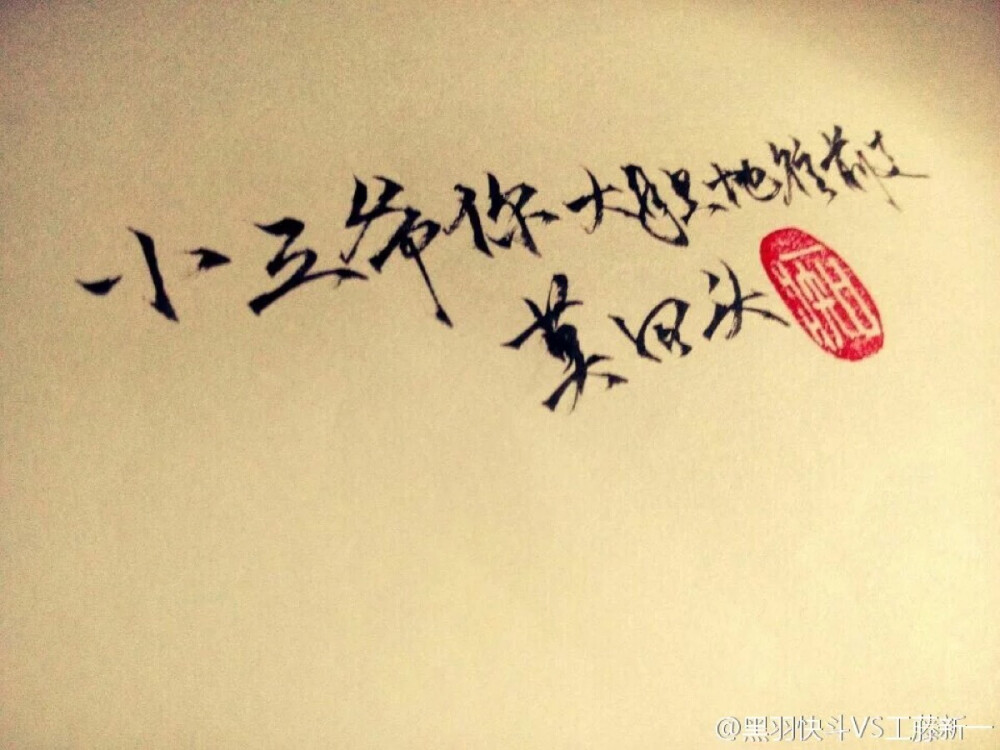 小三爷你大胆地往前走
莫回头
@黑羽快斗VS工藤新一